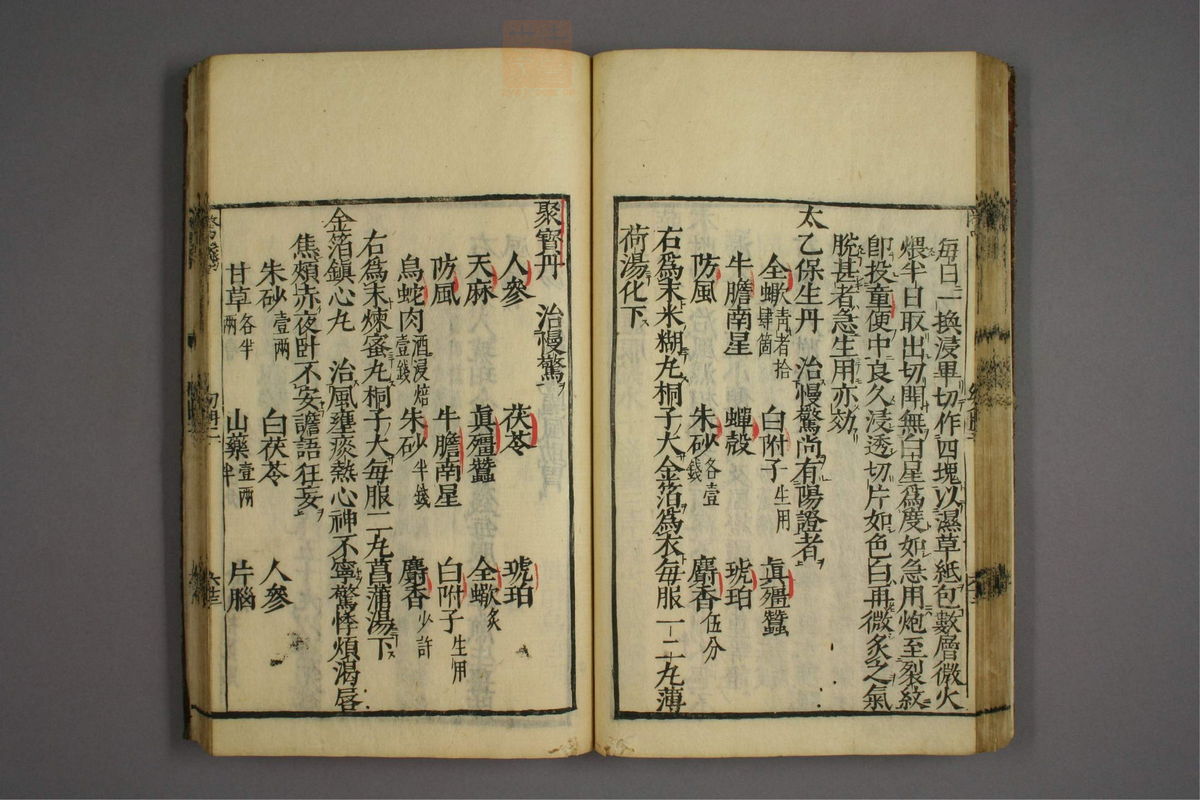 每日一換浸畢切作四塊以濕草紙包數層微火
煨半日取出切開無白星爲度如急用炮至裂紋
卽投童便中良久浸透切片如色白再微炙之氣
脫甚者急生用亦効
太乙保生丹　治慢驚尚有陽證者
全蠍青者拾肆箇　白附子生用　眞殭蠶
牛膽南星　蟬殼　琥珀
防風　朱砂各壹錢　麝香伍分
右爲末米糊丸桐子大金箔爲衣每服一二丸薄
荷湯化下
聚寳丹　治慢驚
人參　茯苓　琥珀
天麻　眞殭蠶　全蠍炙
防風　牛膽南星　白附子生用
烏蛇肉酒浸焙壹錢　朱砂半錢　麝香少許
右爲末煉蜜丸桐子大每服二丸菖蒲湯下
金箔鎮心丸　治風壅痰熱心神不寧驚悸煩渴唇
焦頰赤夜卧不安譫語狂妄
朱砂壹兩　白茯苓　人參
甘草各半兩　山藥壹兩半　片腦